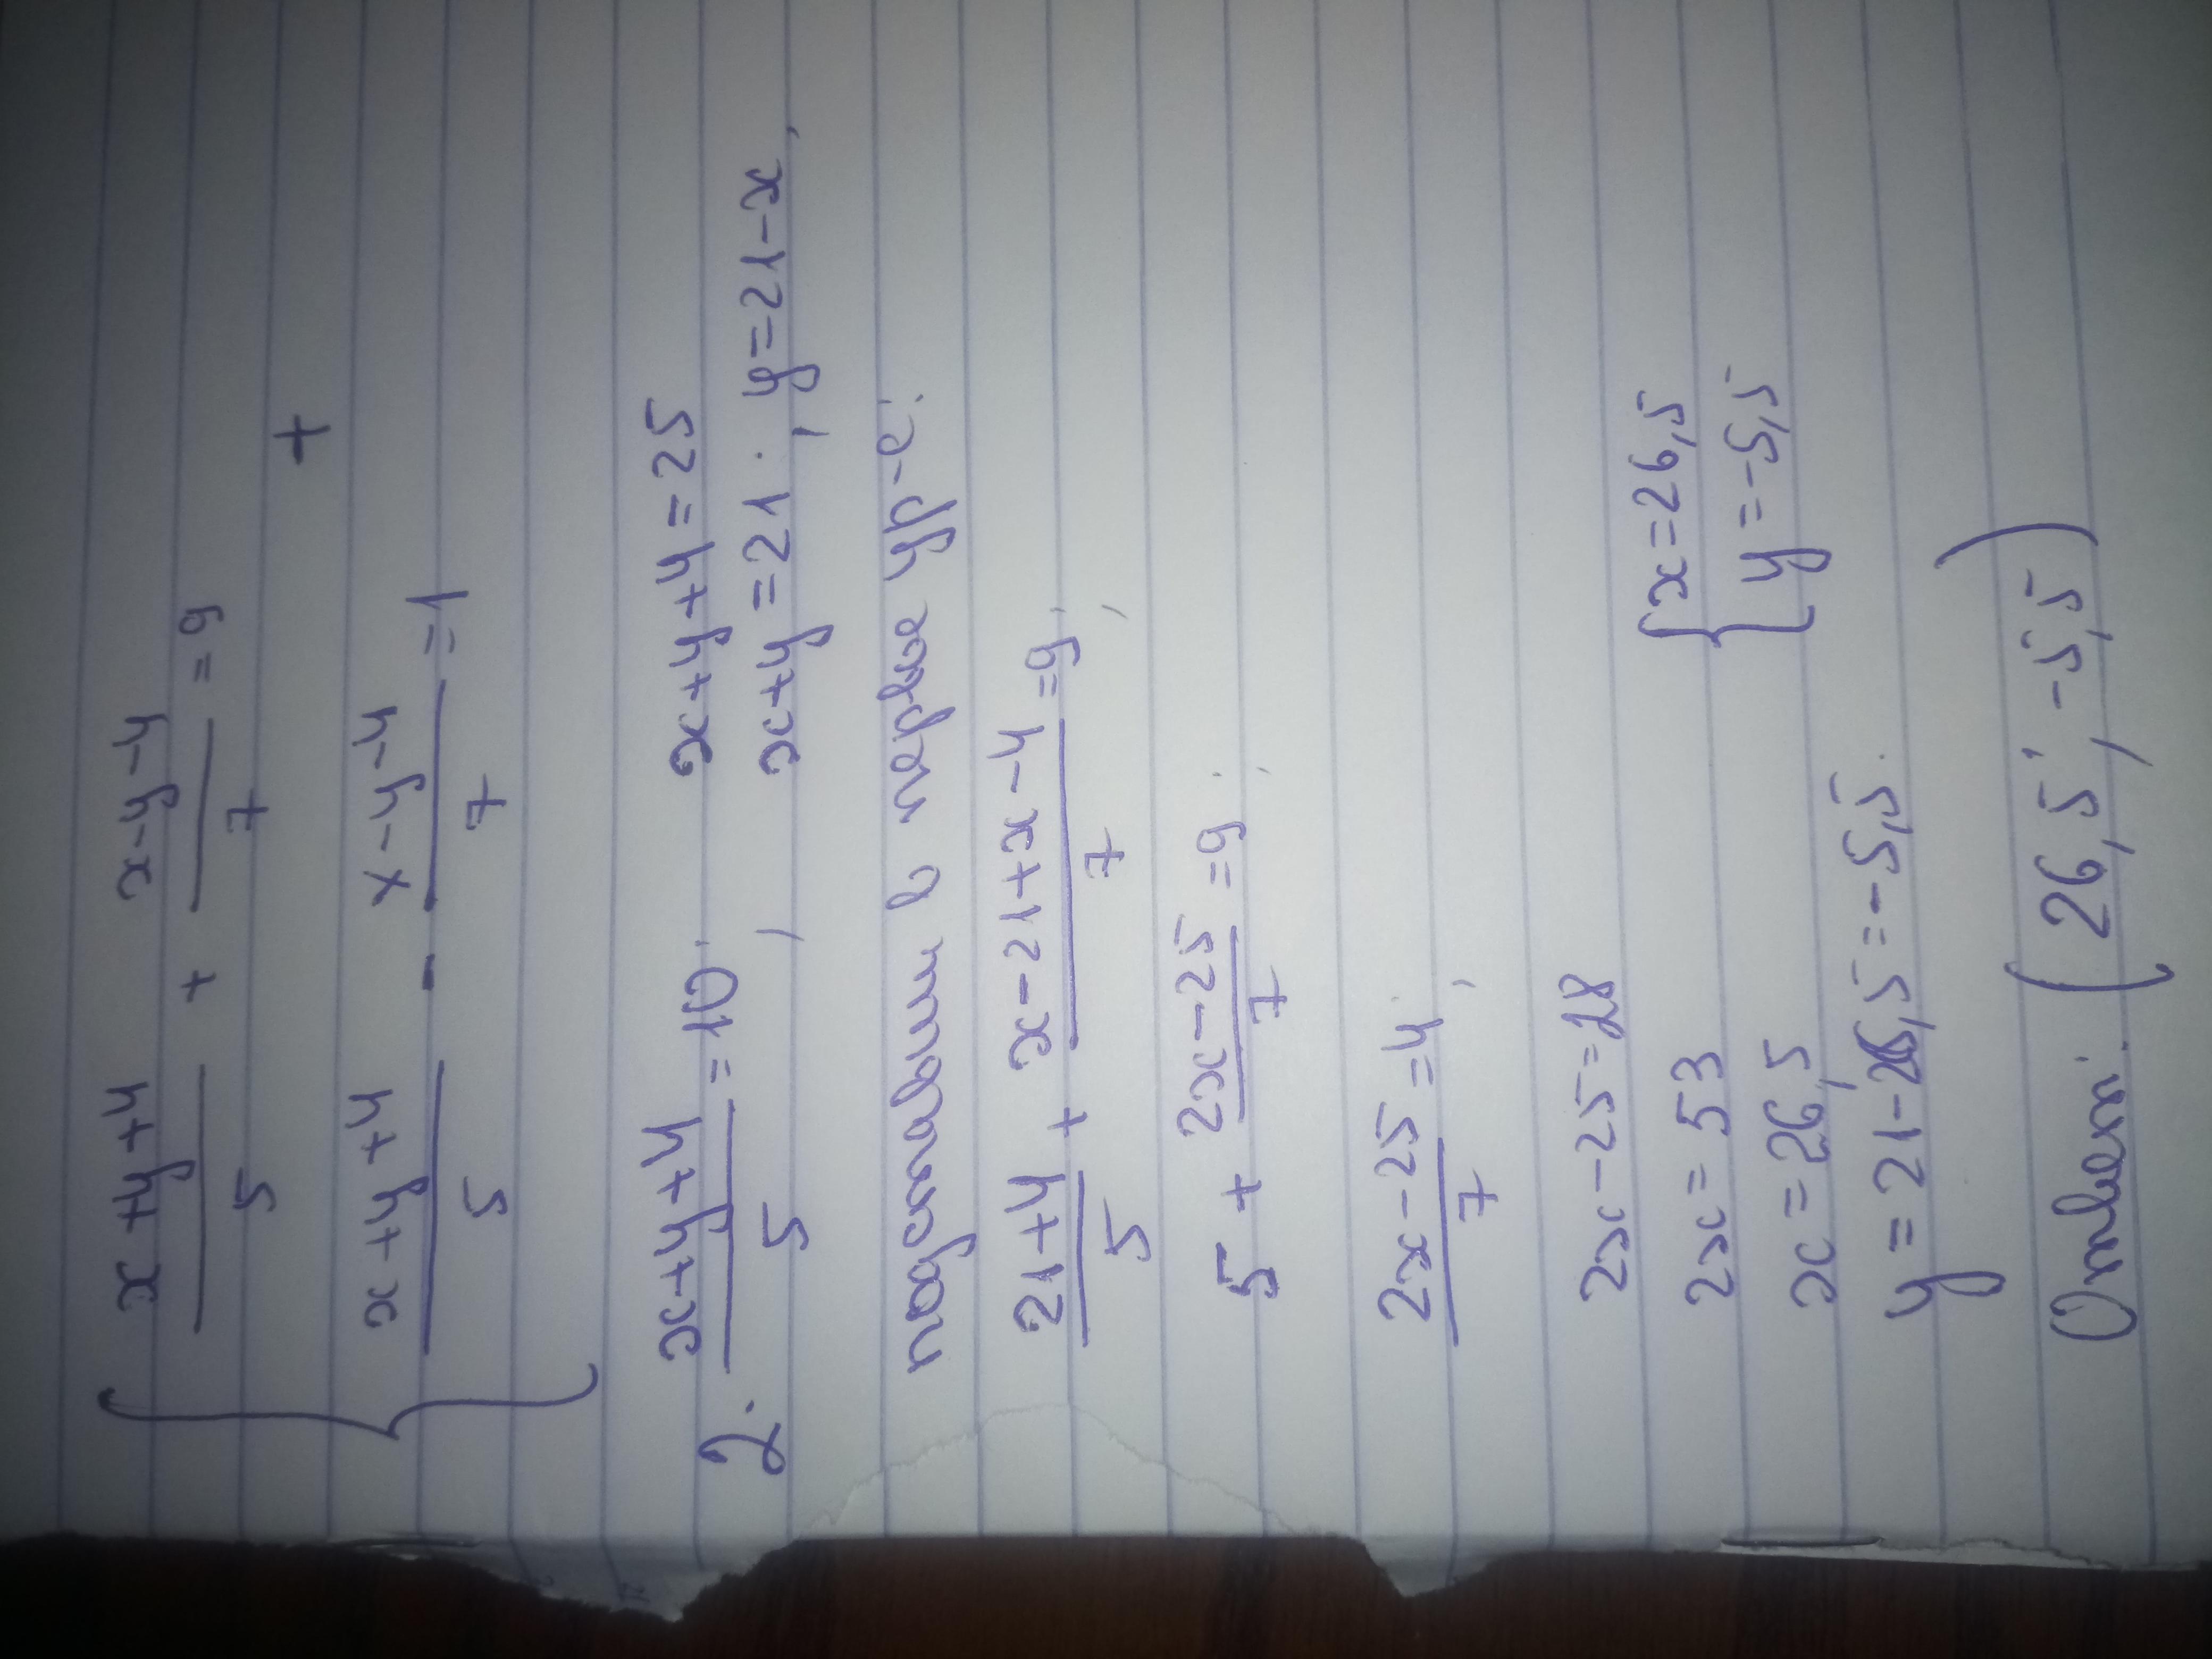 { (x+y+4)/5 + (x-y-4)/7 = 9
+
(x+y+4)/5 - (x-y-4)/7 = 1
2·(x+y+4)/5 = 10; x+y+4=25
x+y=21; y=21-x,
подставим в первое ур-е:
(21+4)/5 + (x-21+x-4)/7 = 9;
5 + (2x-25)/7 = 9;
(2x-25)/7 = 4;
2x-25=28
2x=53
x=26,5
{ x=26,5
y=-5,5
y=21-26,5=-5,5.
Ответ: (26,5; -5,5)